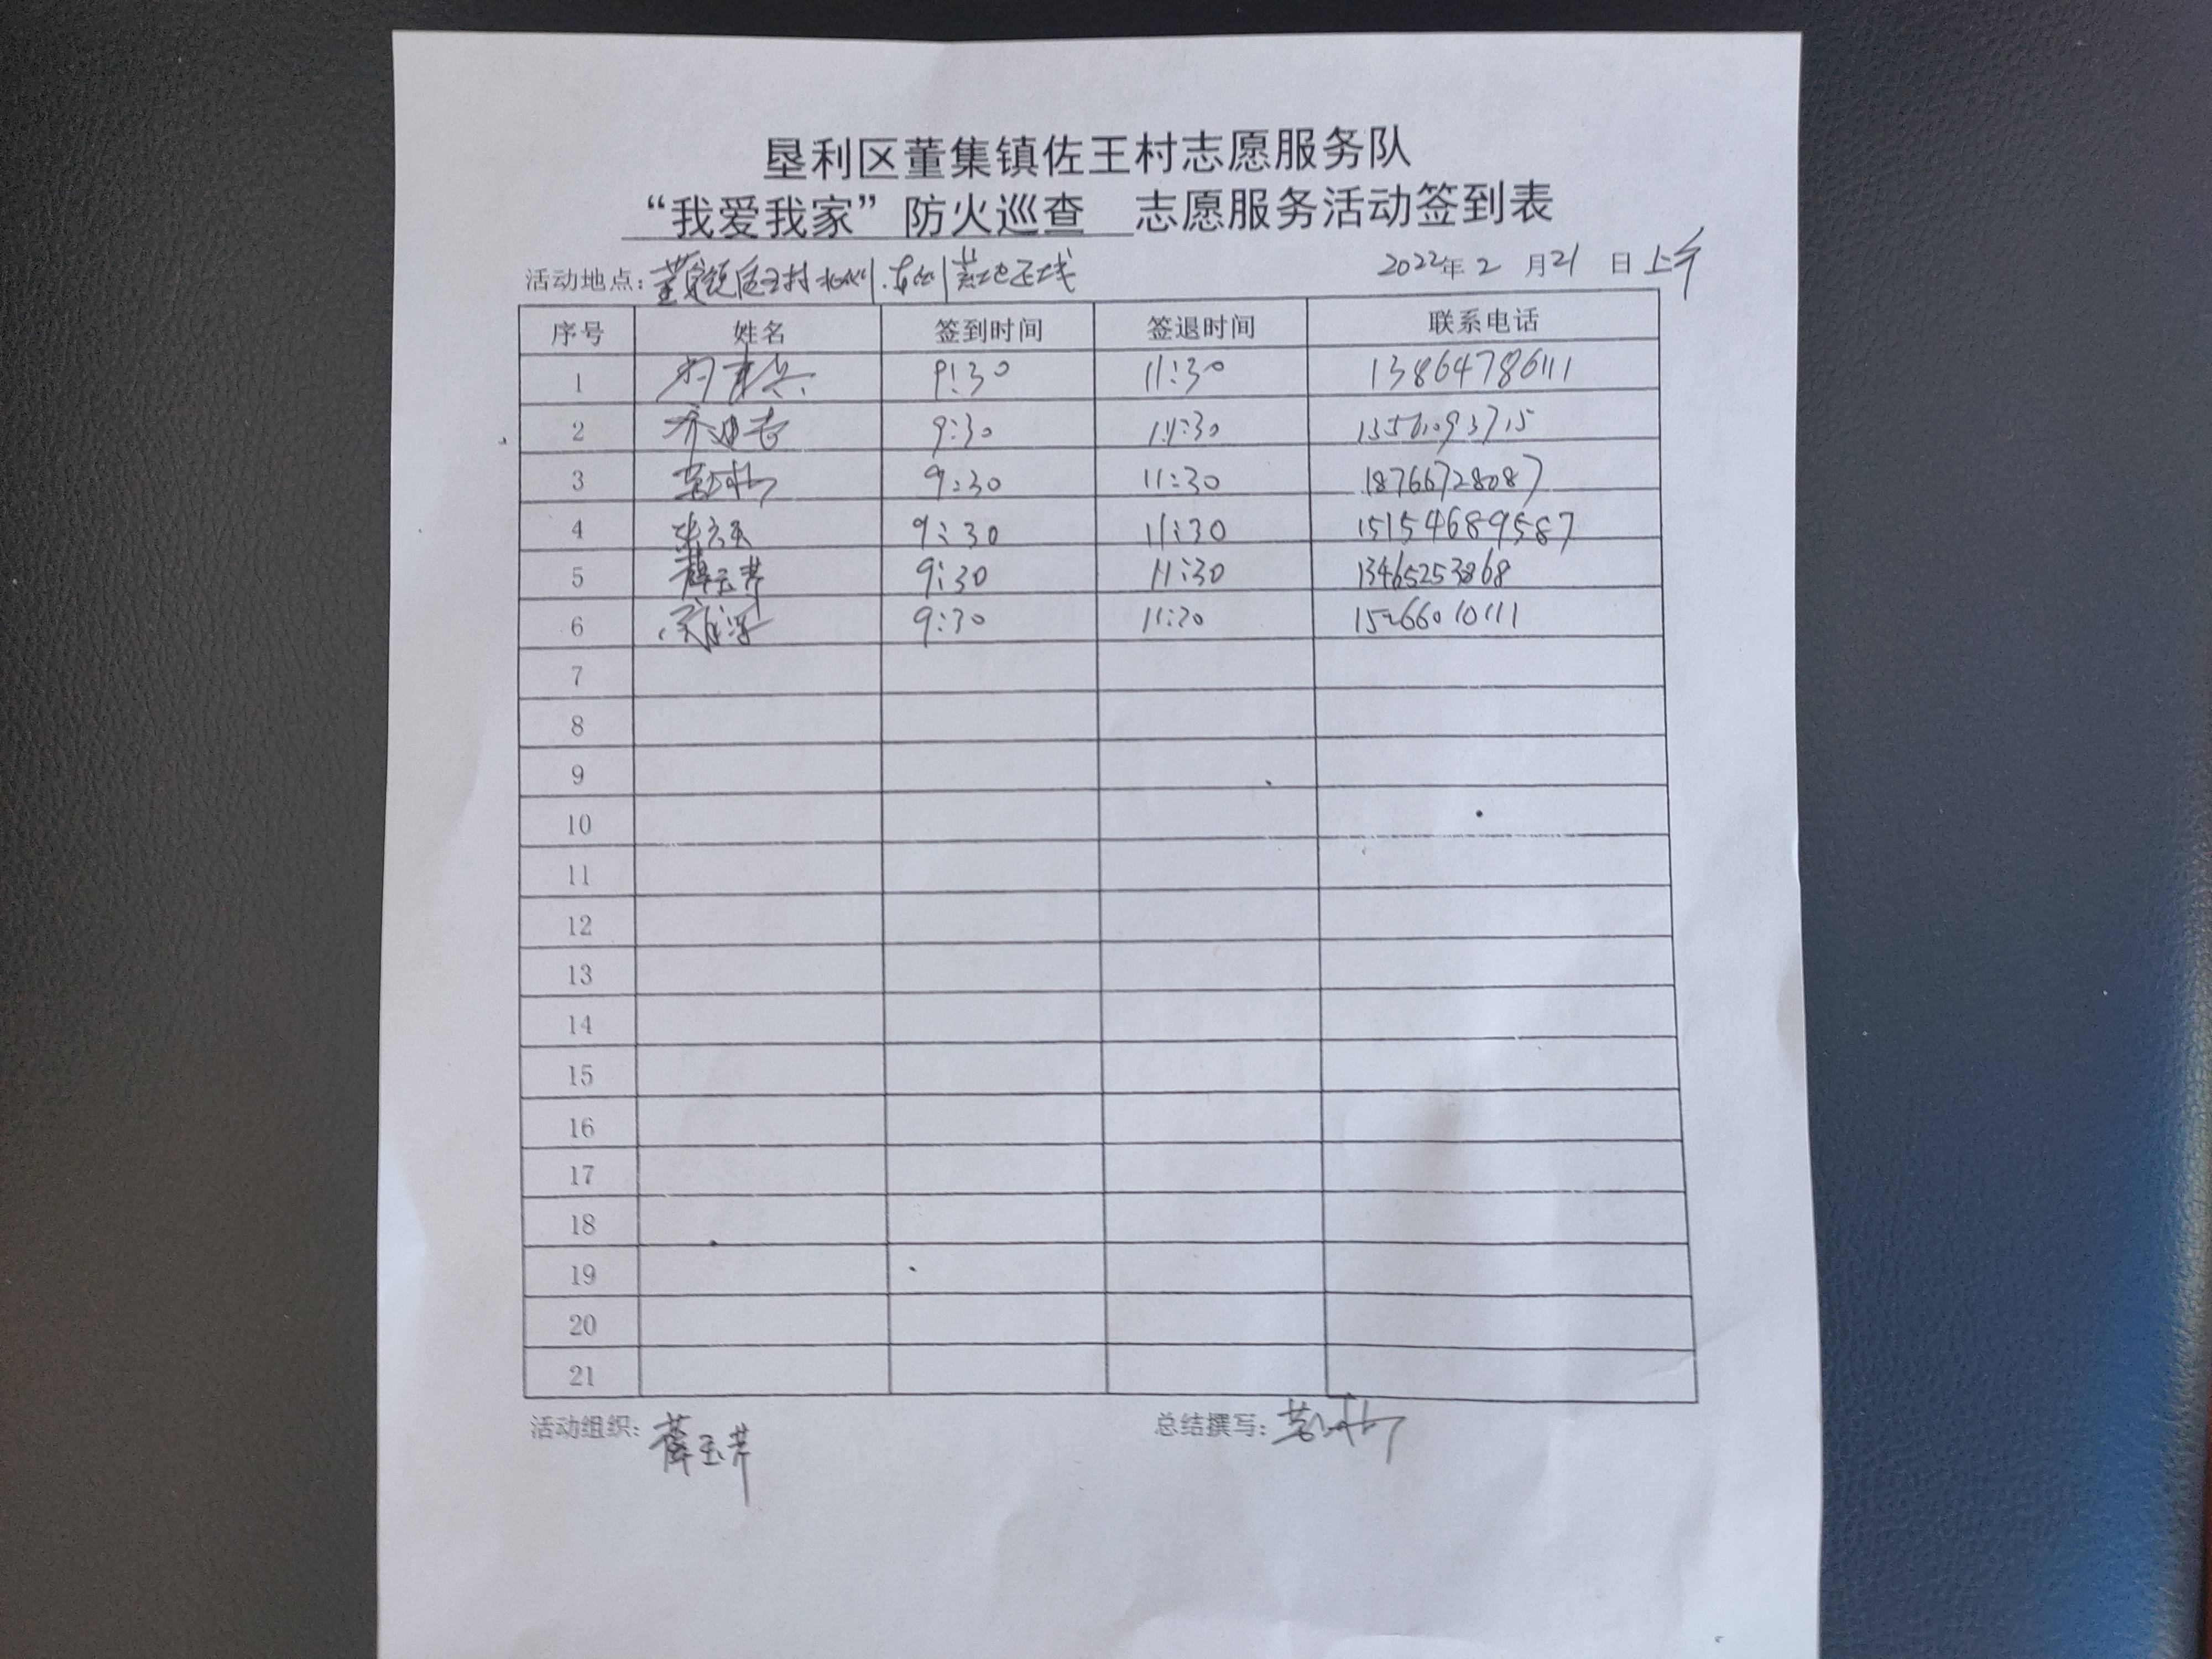 垦利区董集镇佐王村志愿服务队
“我爱我家”防火巡查 志愿服务活动签到表
活动地点：董集镇佐王村 2022年2月21日上午
序号 姓名 签到时间 签退时间 联系电话
1 9:30 11:30 13864786111
2 9:30 11:30
3 9:30 11:30 18766728087
4 9:30 11:30 15154689587
5 薛玉芹 9:30 11:30 13465253868
6 9:30 11:30 15266010111
7
8
9
10
11
12
13
14
15
16
17
18
19
20
21
活动组织：薛玉芹 总结撰写：